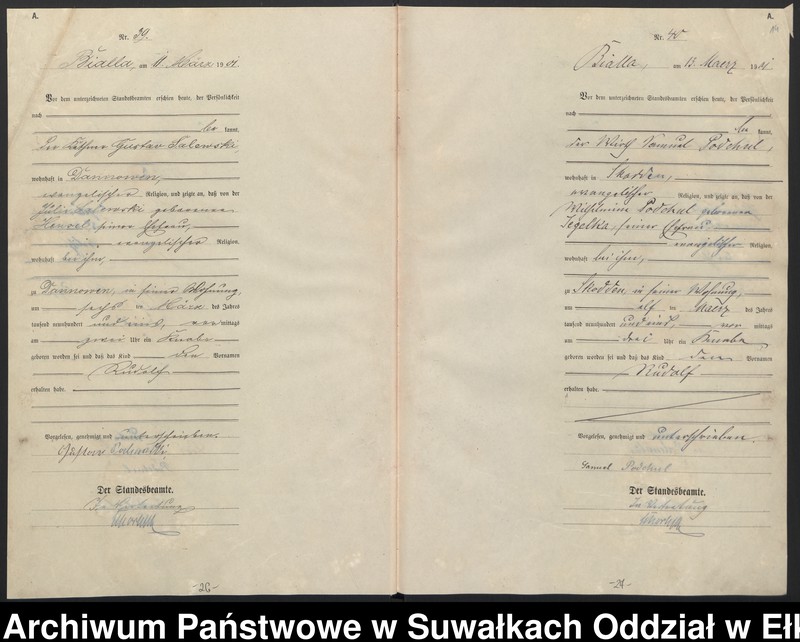 A.
Nr. 39.
Bialla, am 11 März 1901
Vor dem unterzeichneten Standesbeamten erschien heute, der Persönlichkeit
nach
be kannt,
der Käthner Gustav Salewski
wohnhaft in Dannowen,
evangelischer Religion, und zeigte an, daß von der
Julie Salewski geborenen
Hensel, seiner Ehefrau,
evangelischer Religion,
wohnhaft bei ihm,
zu Dannowen, in seiner Wohnung,
am sechs ten März des Jahres
tausend neunhundert und eins, vor mittags
um zwei Uhr ein Knabe
geboren worden sei und daß das Kind den Vornamen
Rudolf
erhalten habe.
Vorgelesen, genehmigt und unterschrieben.
Gustav
Der Standesbeamte.
In Vertretung
-26-
A.
Nr. 40
Bialla, am 13. Maerz 1901
Vor dem unterzeichneten Standesbeamten erschien heute, der Persönlichkeit
nach
be kannt,
der Wirth Samuel Podchul,
wohnhaft in Skodden,
evangelischer Religion, und zeigte an, daß von der
Wilhelmine Podchul geborenen
Jegelka, seiner Ehefrau,
evangelischer Religion,
wohnhaft bei ihm,
zu Skodden, in seiner Wohnung,
am elf ten Maerz des Jahres
tausend neunhundert und eins, vor mittags
um drei Uhr ein Knabe
geboren worden sei und daß das Kind den Vornamen
Rudolf
erhalten habe.
Vorgelesen, genehmigt und unterschrieben.
Samuel Podchul
Der Standesbeamte.
In Vertretung
-27-
Archiwum Państwowe w Suwałkach Oddział w Eł